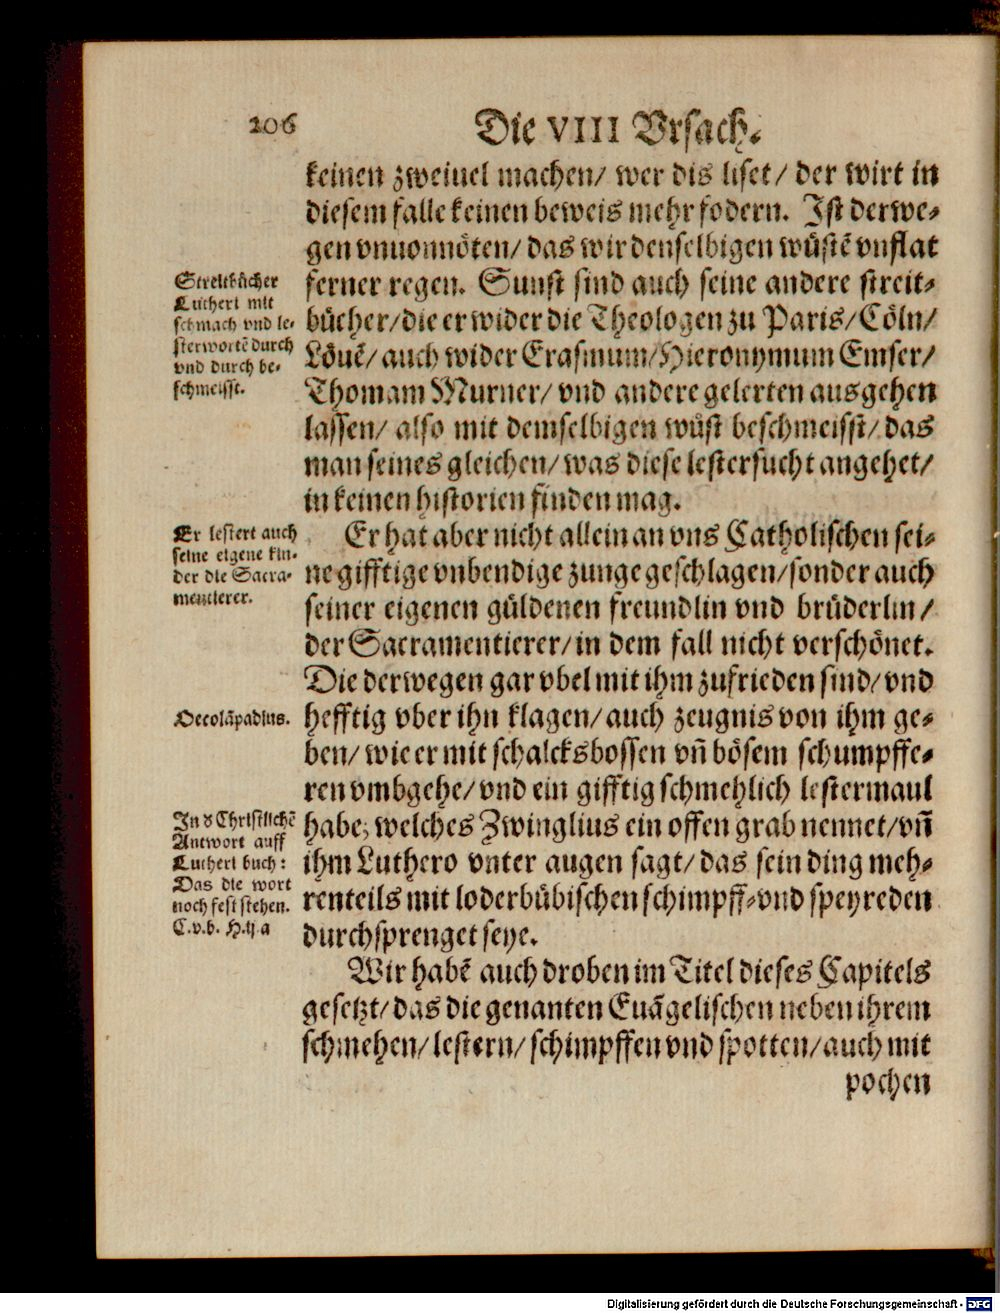 206
Die VIII Vrsach.
keinen zweiuel machen/ wer dis liset/ der wirt in
diesem falle keinen beweis mehr fodern. Ist derwe-
gen vnuonnöten/ das wir denselbigen wüstẽ vnflat
ferner regen. Sunst sind auch seine andere streit-
bücher/ die er wider die Theologen zu Paris/ Cöln/
Löuẽ/ auch wider Erasmum/ Hieronymum Emser/
Thomam Murner/ vnd andere gelerten ausgehen
lassen/ also mit demselbigen wüst beschmeisst/ das
man seines gleichen/ was diese lestersucht angehet/
in keinen historien finden mag.
Streitbücher
Lutheri mit
schmach vnd le-
sterwortẽ durch
vnd durch be-
schmeisst.
Er hat aber nicht allein an vns Catholischen sei-
ne gifftige vnbendige zunge geschlagen/ sonder auch
seiner eigenen güldenen freundlin vnd brüderlin/
der Sacramentierer/ in dem fall nicht verschönet.
Die derwegen gar vbel mit ihm zufrieden sind/ vnd
hefftig vber ihn klagen/ auch zeugnis von ihm ge-
ben/ wie er mit schalcksbossen vñ bösem schumpffe-
ren vmbgehe/ vnd ein gifftig schmehlich lestermaul
habe; welches Zwinglius ein offen grab nennet/ vñ
ihm Luthero vnter augen sagt/ das sein ding meh-
renteils mit loderbübischen schimpff-vnd speyreden
durchsprenget seye.
Er lestert auch
seine eigene kin-
der die Sacra-
mentierer.
Oecolãpadius.
In d Christlichẽ
Antwort auff
Lutheri buch:
Das die wort
noch fest stehen.
C.v.b. H.ij a
Wir habẽ auch droben im Titel dieses Capitels
gesetzt/ das die genanten Euãgelischen neben ihrem
schmehen/ lestern/ schimpffen vnd spotten/ auch mit
pochen
Digitalisierung gefördert durch die Deutsche Forschungsgemeinschaft - DFG